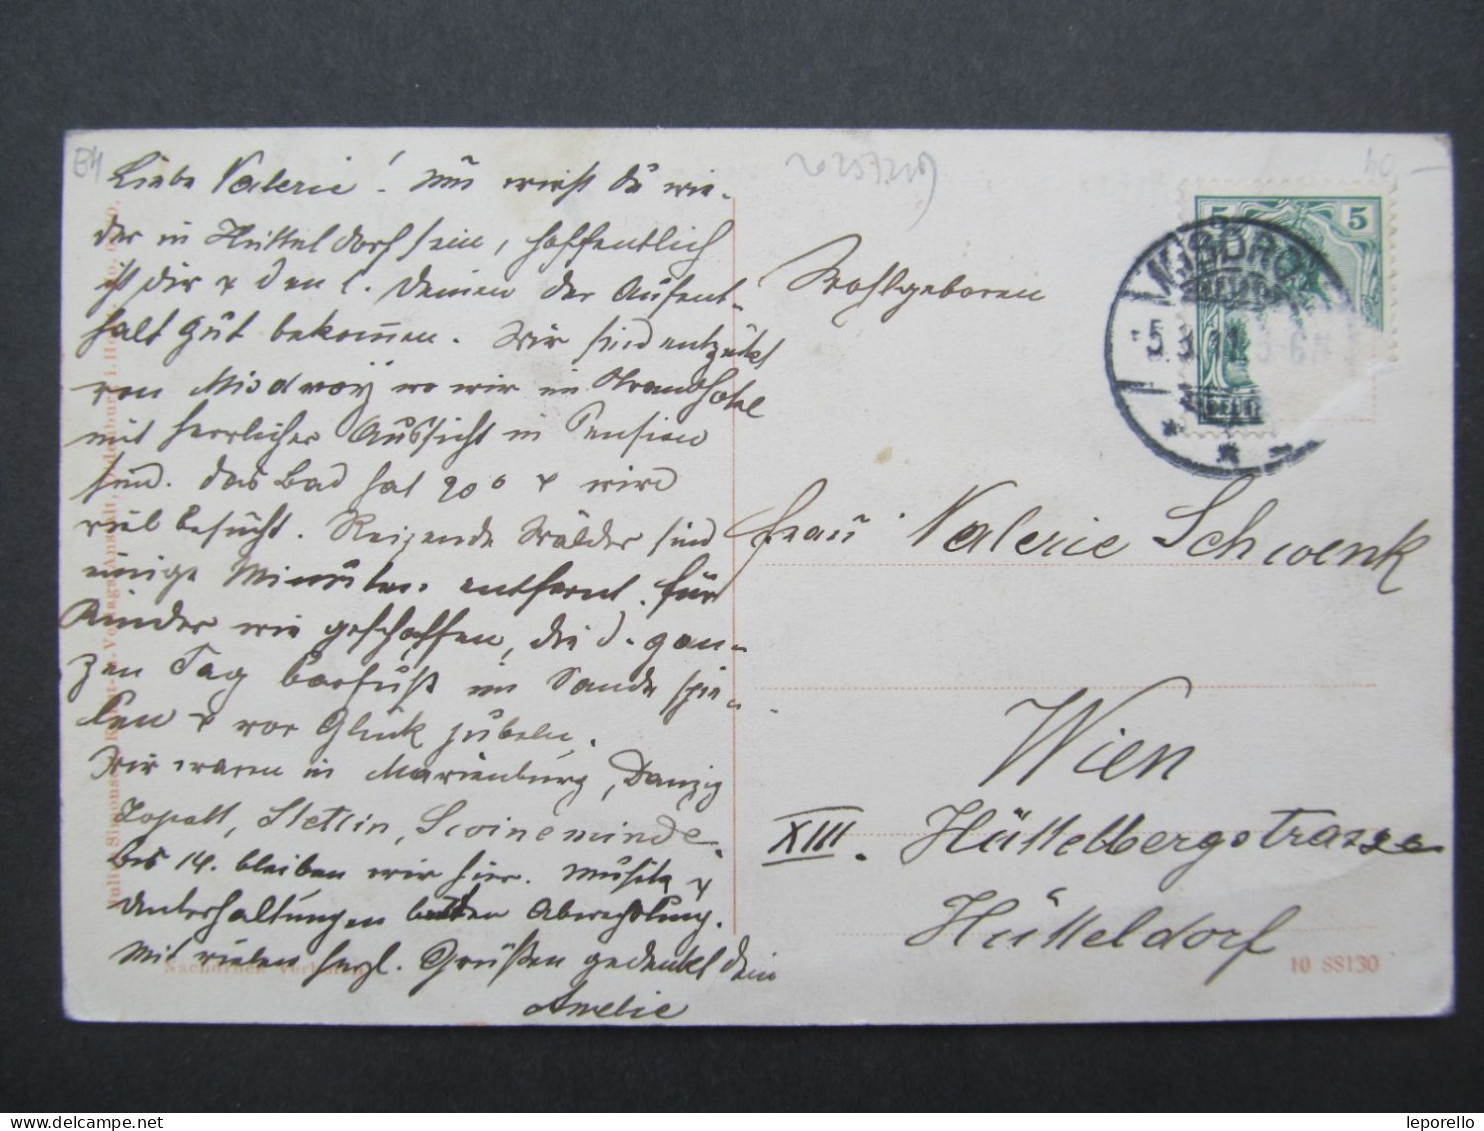 Liebe Valerie! Nun wirst Du wie-
der in Hütteldorf sein, hoffentlich
ist Dir & den l. Deinen der Aufent-
halt gut bekommen. Wir sind entzückt
von Misdroy wo wir im Strandhotel
mit herrlicher Aussicht in Pension
sind. Das Bad hat 20° & wird
viel besucht. Reizende Wälder sind
einige Minuten entfernt. für
Kinder wie geschaffen, die d. gan-
zen Tag barfuß im Sande spie-
len & vor Glück jubeln.
Wir waren in Marienburg, Danzig
Zopott, Stettin, Swineminde.
Bis 14. bleiben wir hier. Musik &
Unterhaltungen bieten Abwechslung.
Mit vielen herzl. Grüßen gedenkt Dein
Amelie
Wohlgeboren
Frau Valerie Schwenk
Wien
XIII. Hüttelbergstrasse
Hütteldorf
5 5
10 88130
Nachdruck verboten
leporello